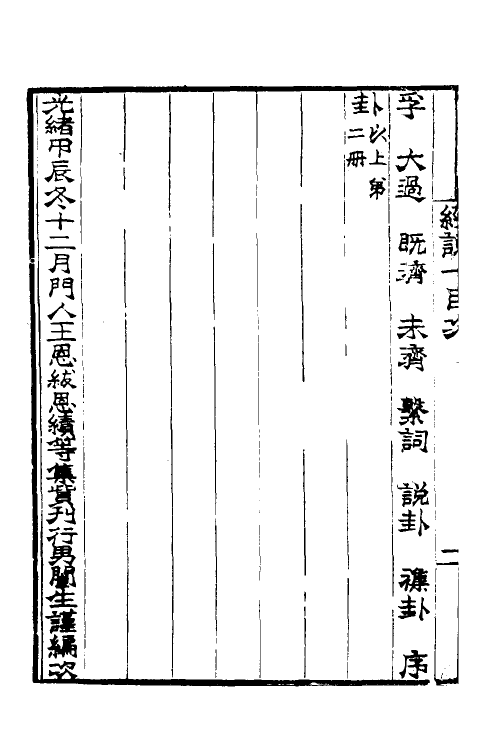 經說一目次
二
孚 大過 既濟 未濟 繫詞 說卦 襍卦 序
卦 以上第
二册
光緒甲辰冬十二月門人王恩紱恩績等集貲刊行男闓生謹編次